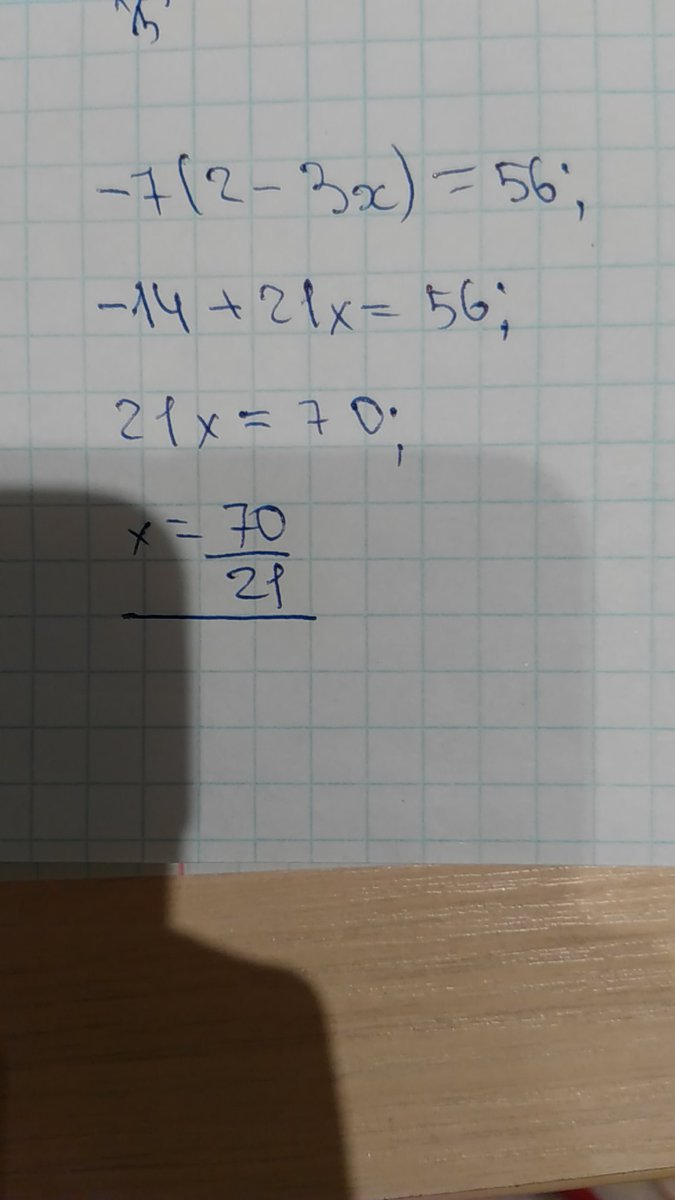 -7(2-3x)=56;
-14+21x=56;
21x=70;
x=70/21